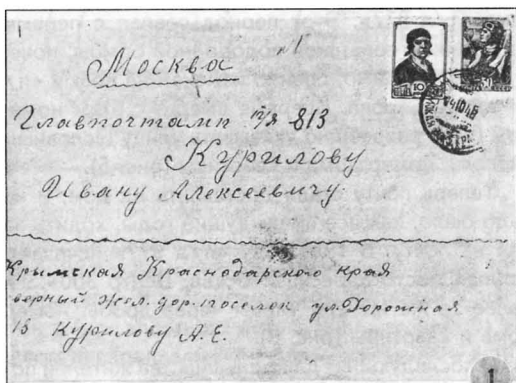 Москва
Главпочтамп п/я 813
Курилову
Ивану Алексеевичу
Крымская Краснодарского края
верный жел. дор. поселок ул. Дорожная
16 Курилову А. Е.
1